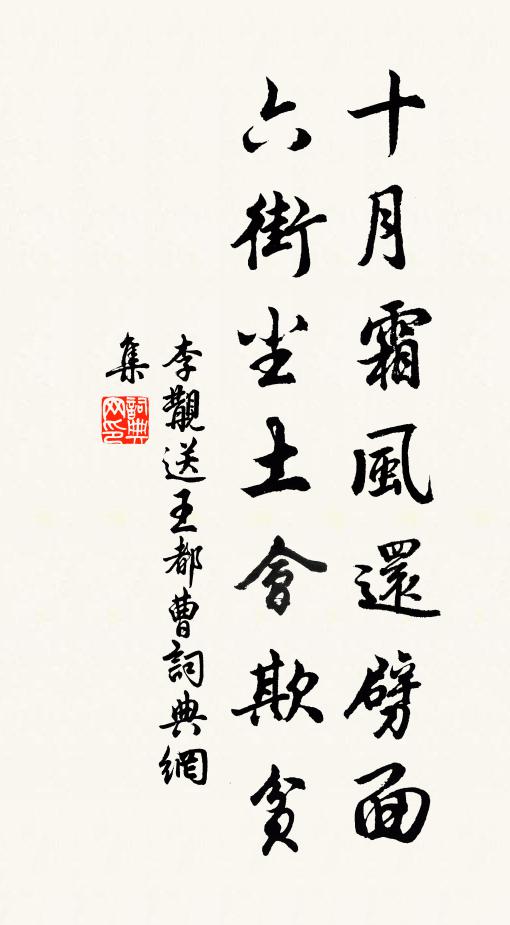 十月霜風還劈面
六街尘土會欺貧
李覯送王都曹詞典網
集
詞典
网印